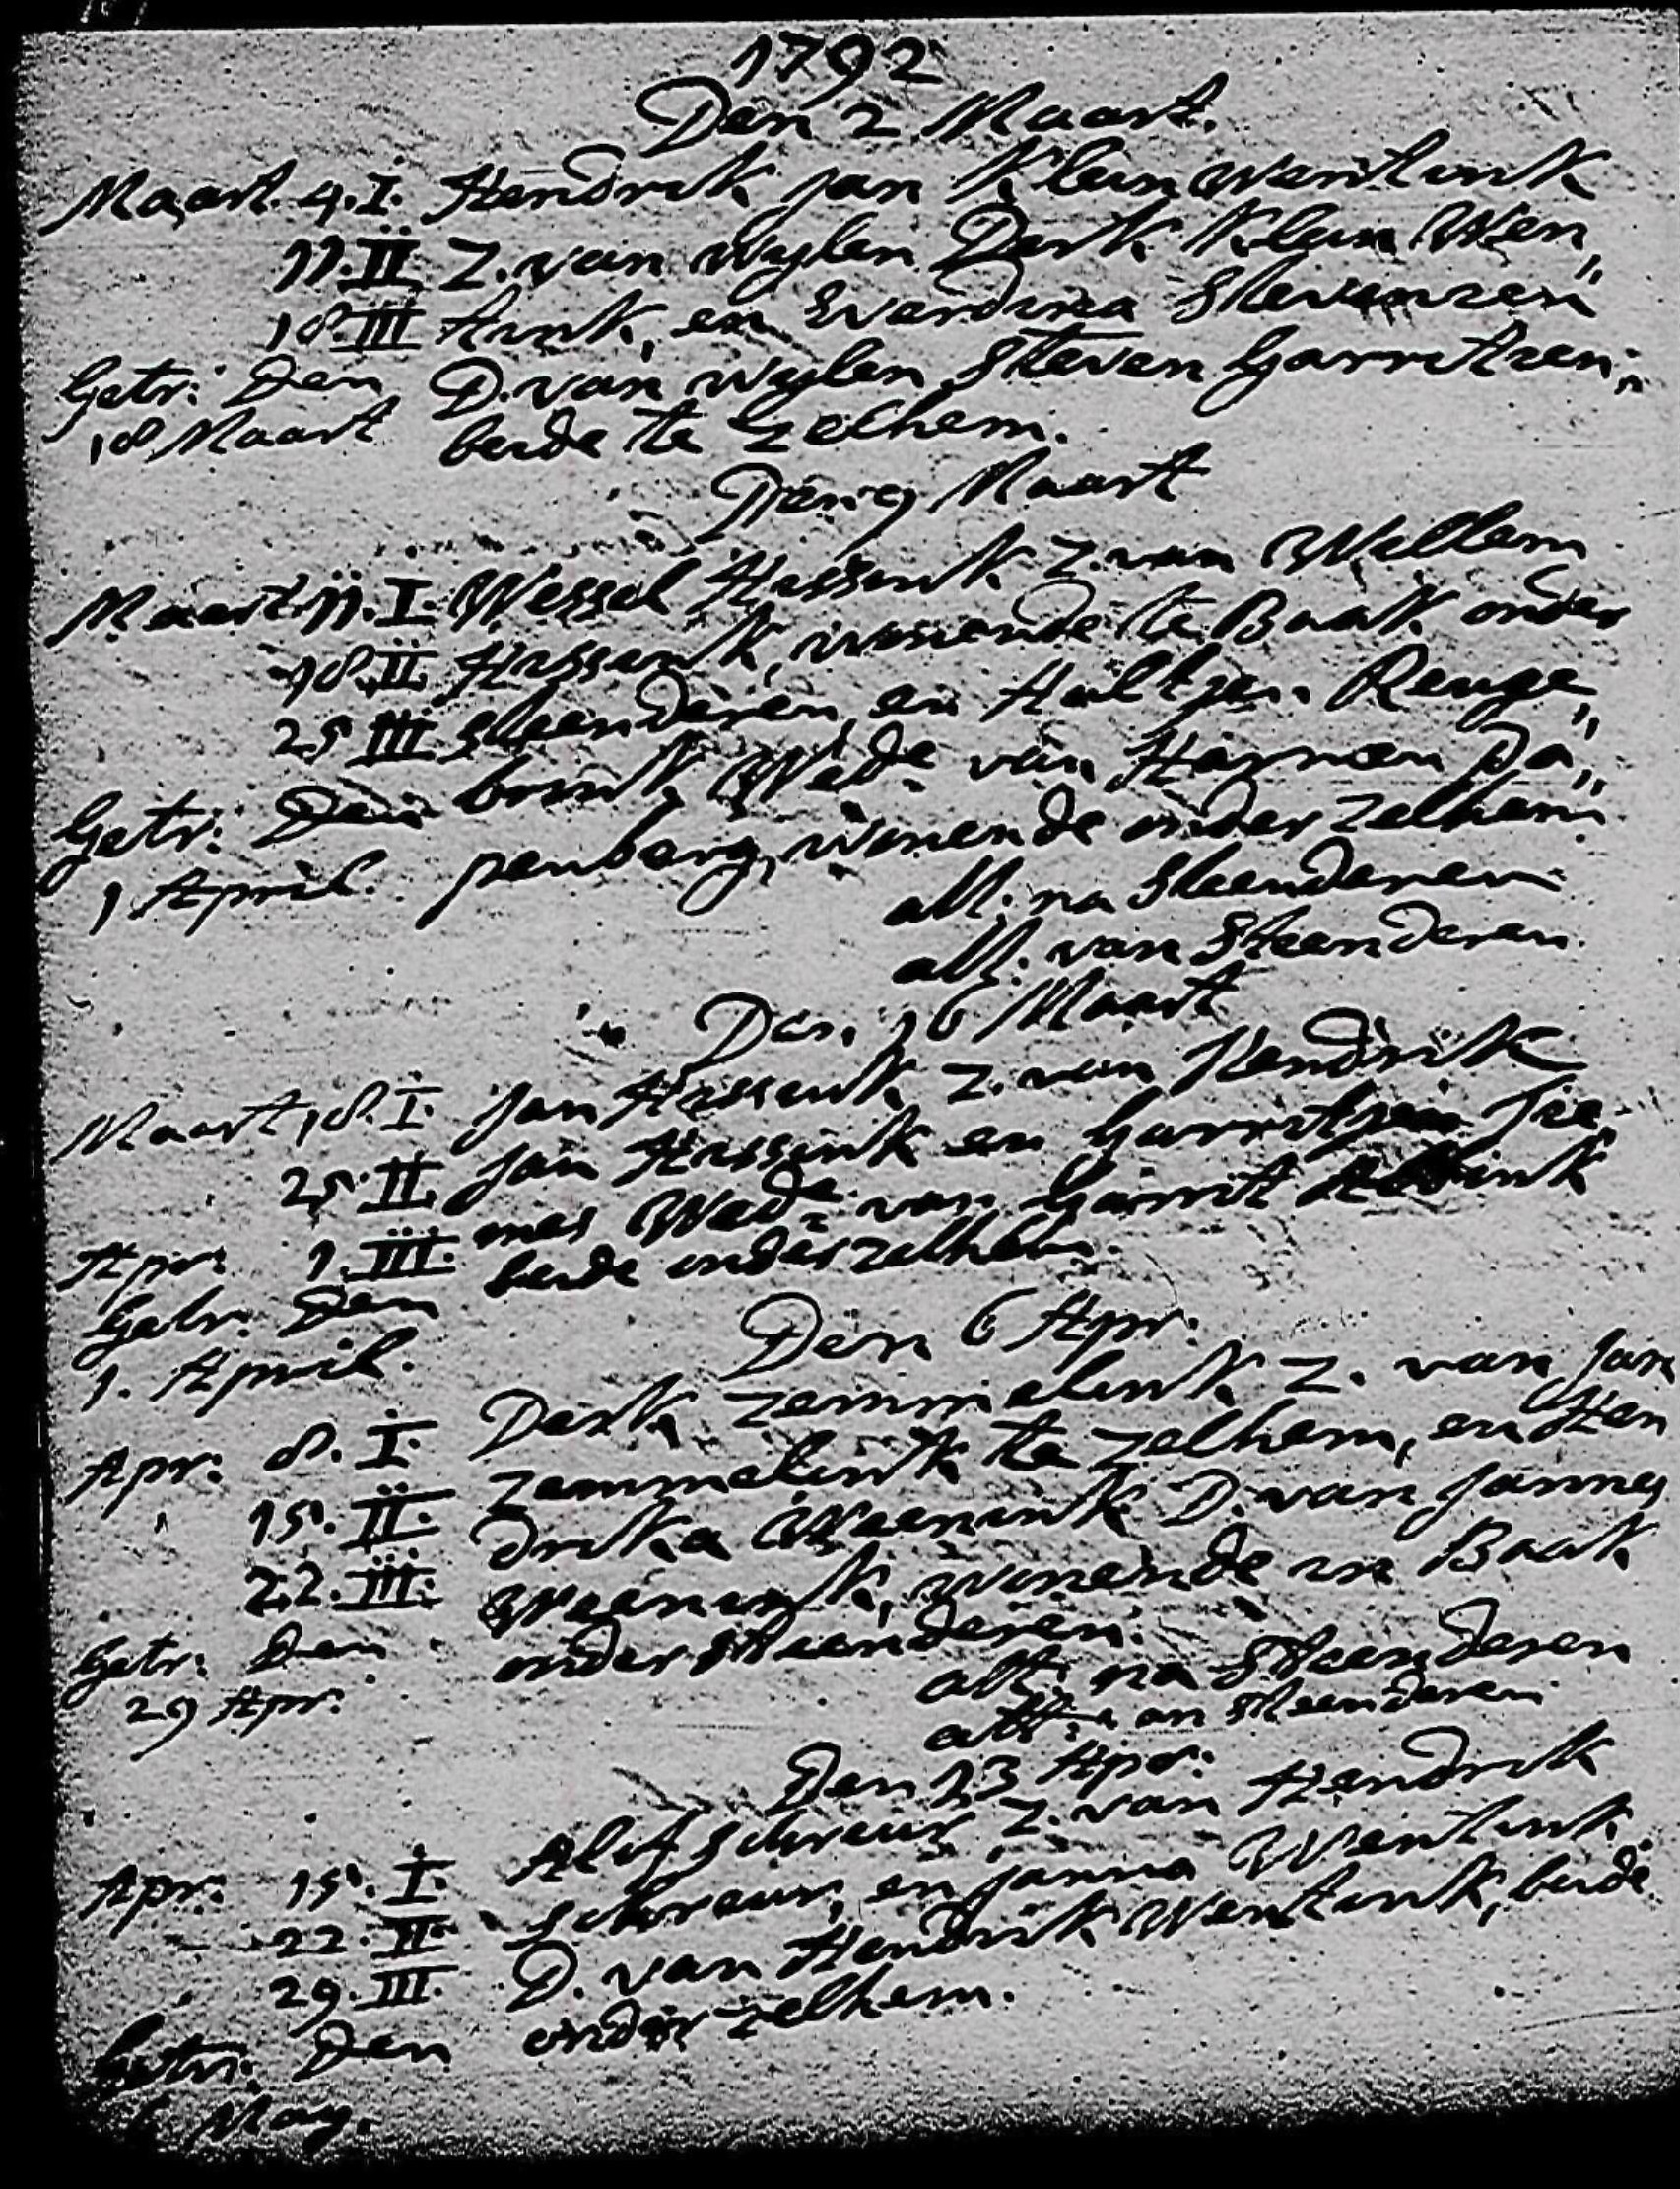 1792
Den 2 Maart.
Maart. 4. I. Hendrik Jan Klein Wentink
11. II Z. van wylen Derk Klein Wen„
18. III tink, en Everdina Stevenzen
Getr: den D. van wylen Steven Garritzen„
18 Maart beide te Zelhem.
Den 9 Maart
Maart 11. I. Wessel Hissink Z. van Willem
18. II Hissink, wonende te Baak onder
25 III Steenderen, en Aaltjen Renge„
Getr: den brink Wede van Harmen Pa„
1 April. penborg, wonende onder Zelhem.
att. na Steenderen
att. van Steenderen.
Den 16 Maart
Maart 18. I. Jan Hissink Z. van Hendrik
25. II. Jan Hissink en Garritjen Tie
Apr: 1. III. mes Wede van Garrit
Getr: den beide onder Zelhem.
1. April.
Den 6 Apr:
Apr: 8. I. Derk Zemmelink Z. van Jan
15. II. Zemmelink te Zelhem, en Hen
22. III. drika Weenink D. van Jannes
Getr: den Weenink, wonende in Baak
29 Apr. onder Steenderen.
att. na Steenderen
att. van Steenderen
Den 13 Apr:
Apr: 15. I. Alof Schreur Z. van Hendrik
22. II. Schreur, en Janna Wentink
29. III. D. van Hendrik Wentink, beide
Getr: den onder Zelhem.
May.